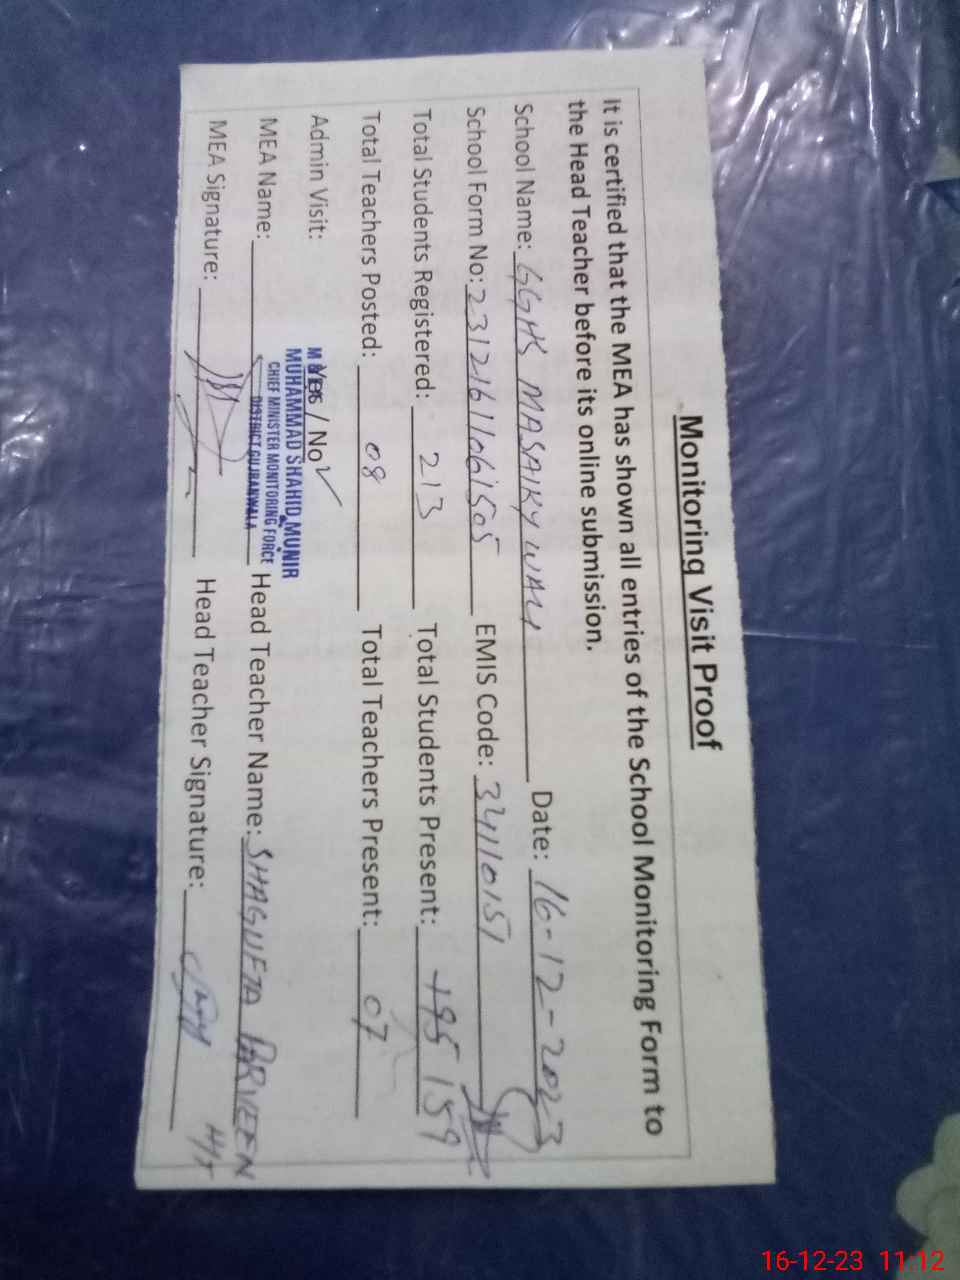 Monitoring Visit Proof
It is certified that the MEA has shown all entries of the School Monitoring Form to
the Head Teacher before its online submission.
School Name: GGHS MASAIKYWALI Date: 16-12-2023
School Form No: 23121611061505 EMIS Code: 34110151
Total Students Registered: 213 Total Students Present: 195 159
Total Teachers Posted: 08 Total Teachers Present: 07
Admin Visit: Yes / No ✓
MUHAMMAD SHAHID MUNIR
CHIEF MINISTER MONITORING FORCE
DISTRICT GUJRANWALA
MEA Name: Head Teacher Name: SHAGUFTA PARVEEN
MEA Signature: Head Teacher Signature:
16-12-23 11:12